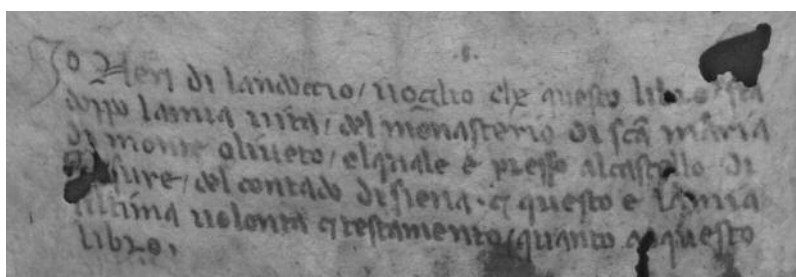 .8.
Jo Neri di landoccio / uoglio che questo libro sia
doppo lamia uita / del monasterio di sca maria
di monte oliueto / elquale è presso alcastello di
sure / del contado di siena · & questo e lamia
ultima uolonta & testamento / quanto a questo
libro,